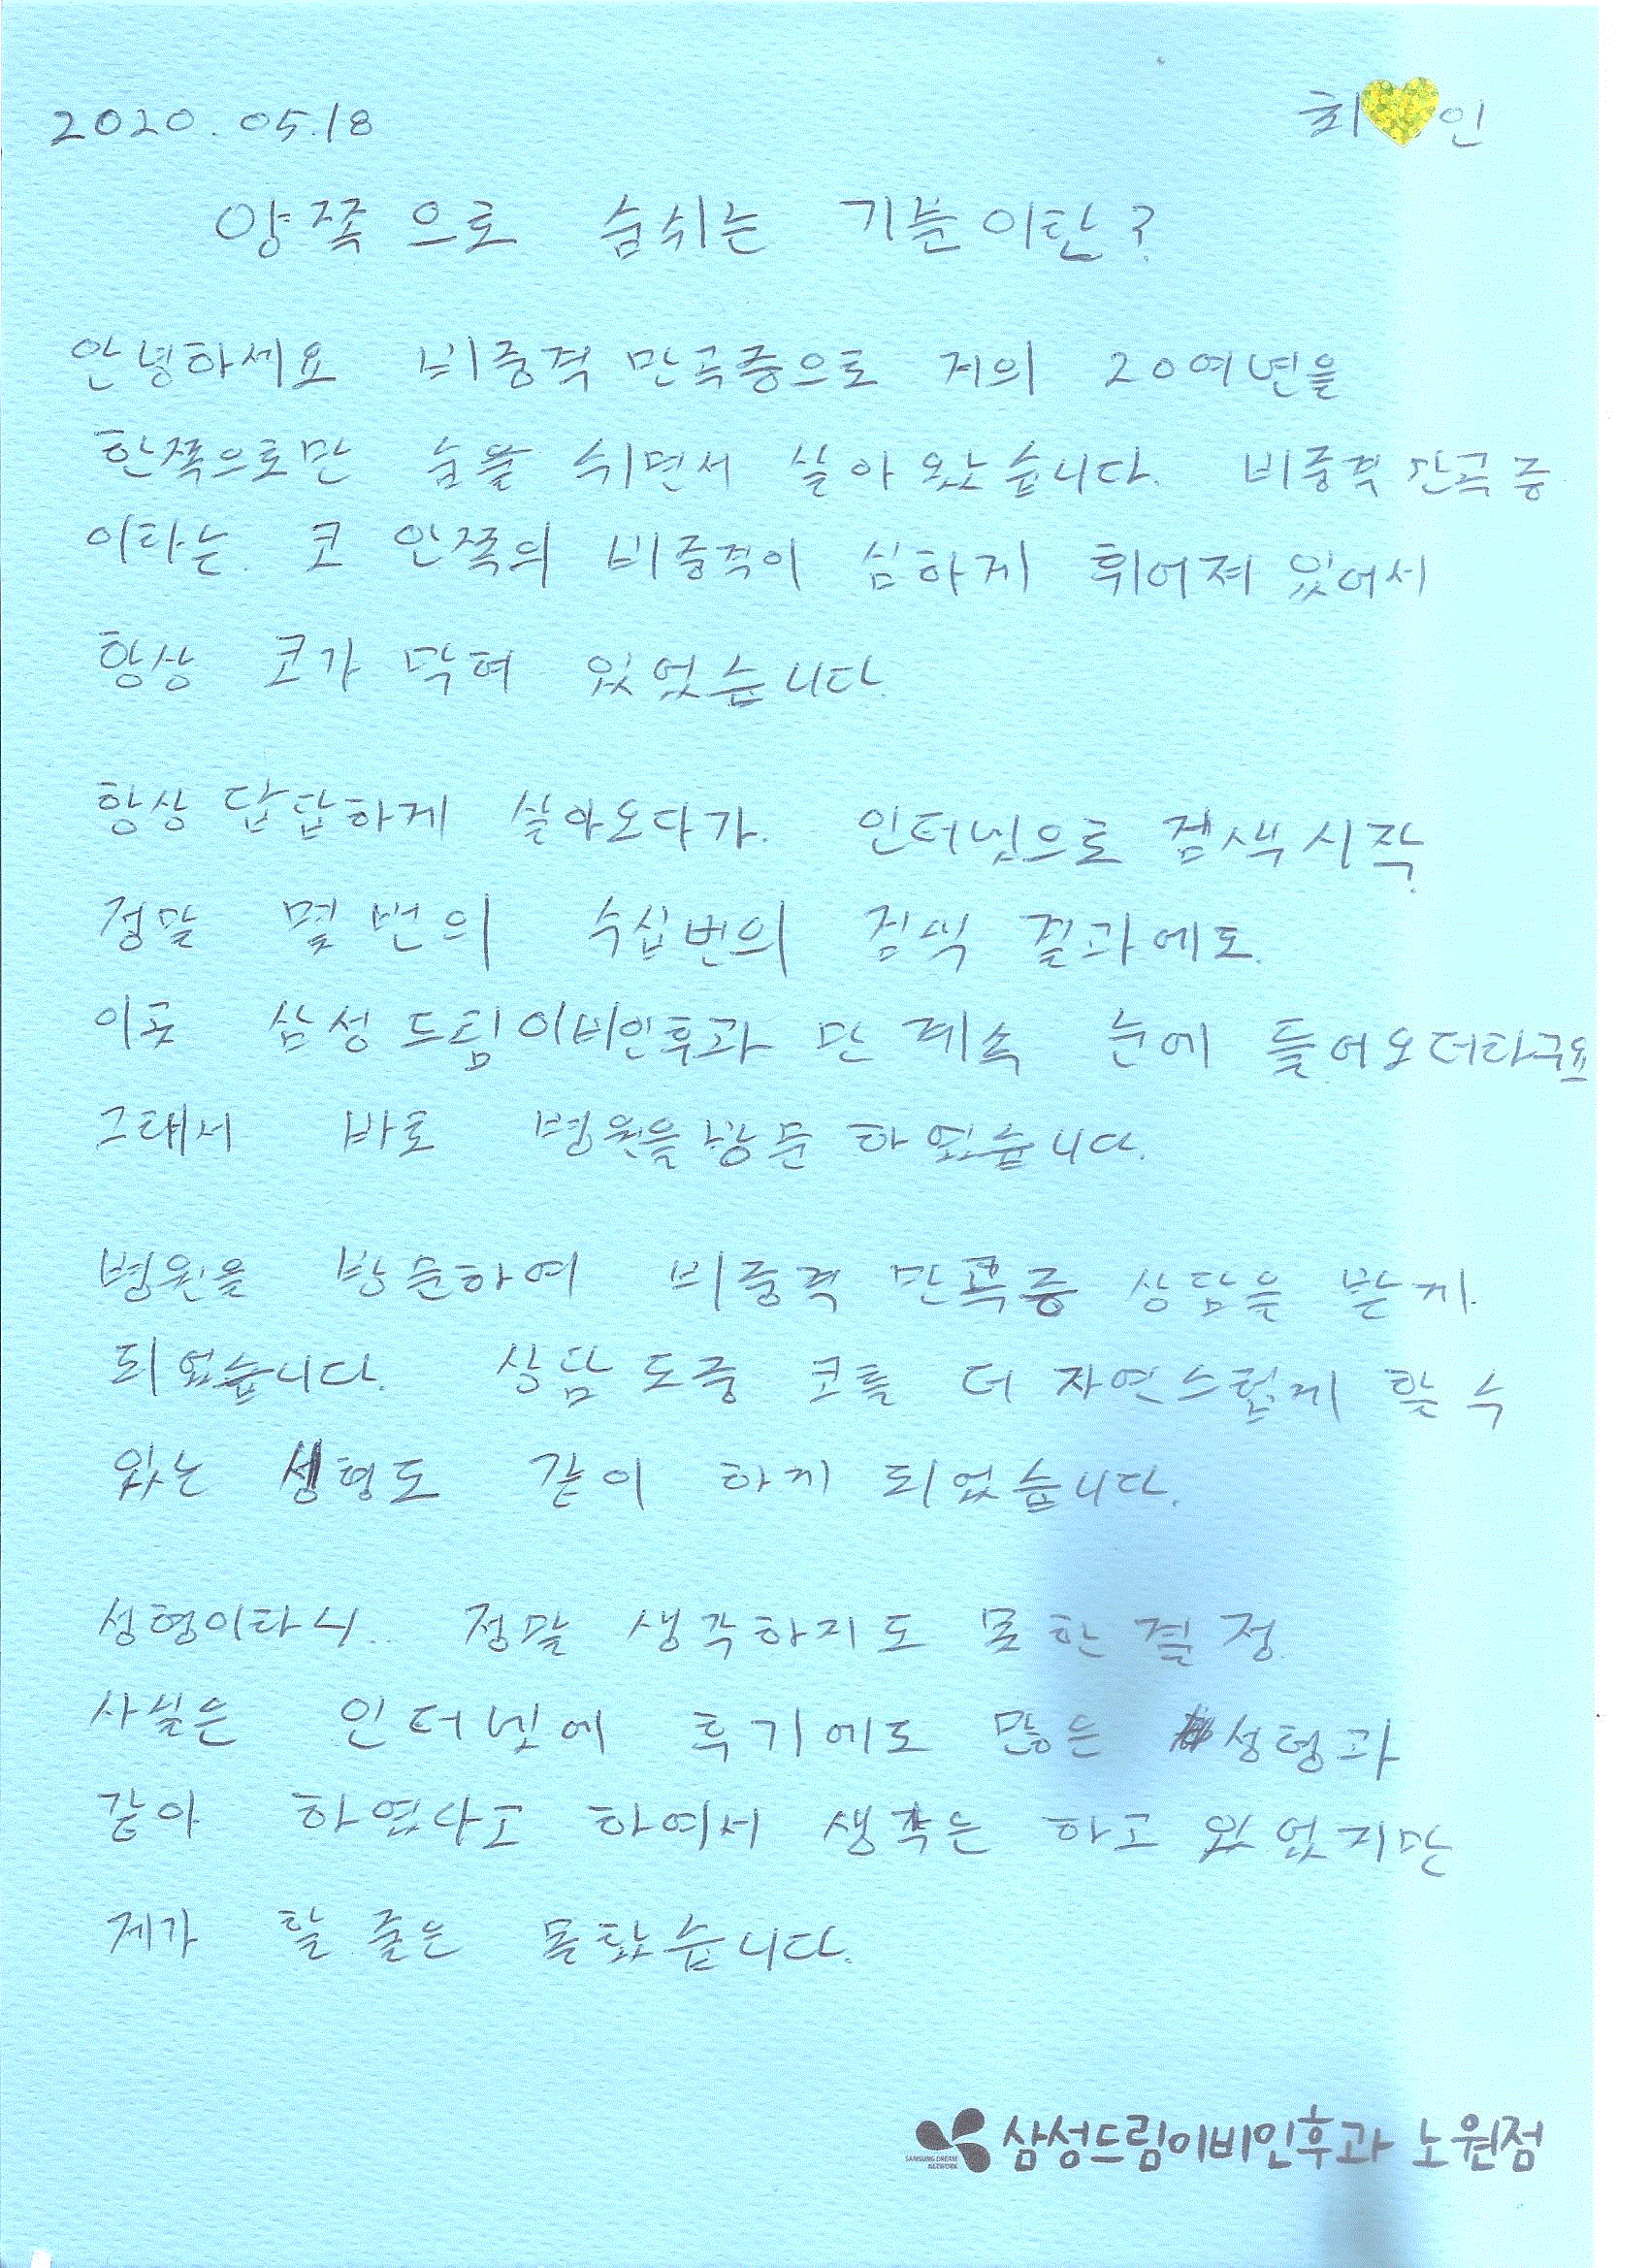 2020.05.18
최 인
양쪽으로 숨쉬는 기분이란?
안녕하세요 비중격 만곡증으로 거의 20여년을
한쪽으로만 숨을 쉬면서 살아왔습니다. 비중격 만곡증
이라는 코 안쪽의 비중격이 심하게 휘어져 있어서
항상 코가 막혀 있었습니다.
항상 답답하게 살아오다가. 인터넷으로 검색시작
정말 몇번의 수십번의 검색 결과에도.
이곳 삼성드림이비인후과 만 계속 눈에 들어오더라구요
그래서 바로 병원을 방문 하였습니다.
병원을 방문하여 비중격 만곡증 상담을 받게
되었습니다. 상담 도중 코를 더 자연스럽게 할 수
있는 성형도 같이 하게 되었습니다.
성형이라니.. 정말 생각하지도 못한 결정
사실은 인터넷에 후기에도 많은 성형과
같이 하였다고 하여서 생각은 하고 있었지만
제가 할 줄은 몰랐습니다.
SAMSUNG DREAM
NETWORK
삼성드림이비인후과 노원점